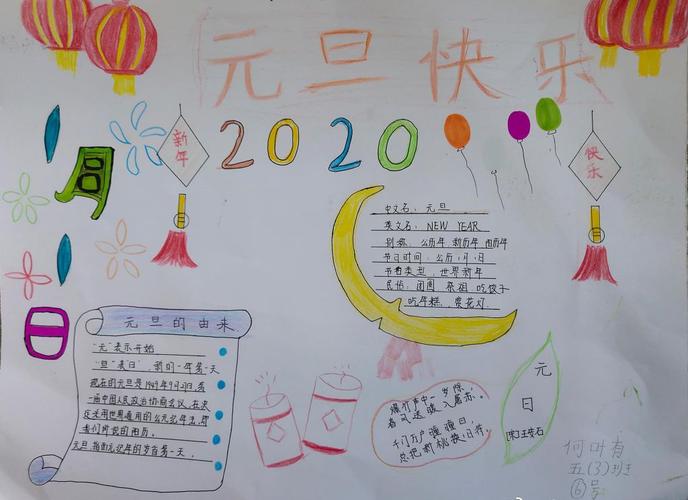 元旦快乐
1
月
1
日
新年
2020
快乐
中文名：元旦
英文名：NEW YEAR
别称：公历年 新历年 阳历年
节日时间：公历1月1日
节日类型：世界新年
民俗：团圆 祭祖 吃饺子
吃年糕、赏花灯
元旦的由来
"元"表示开始
"旦"表"日"，新的一年第一天
现在的元旦是1949年9月21日，第
一届中国人民政治协商会议，在决
定采用世界通用的公元纪年法，即
我们所说的阳历。
元旦，指公元纪年的岁首第一天。
爆竹声中一岁除，
春风送暖入屠苏。
千门万户曈曈日，
总把新桃换旧符。
元
日
[宋]王安石
何叶有
五(3)班
⑥号